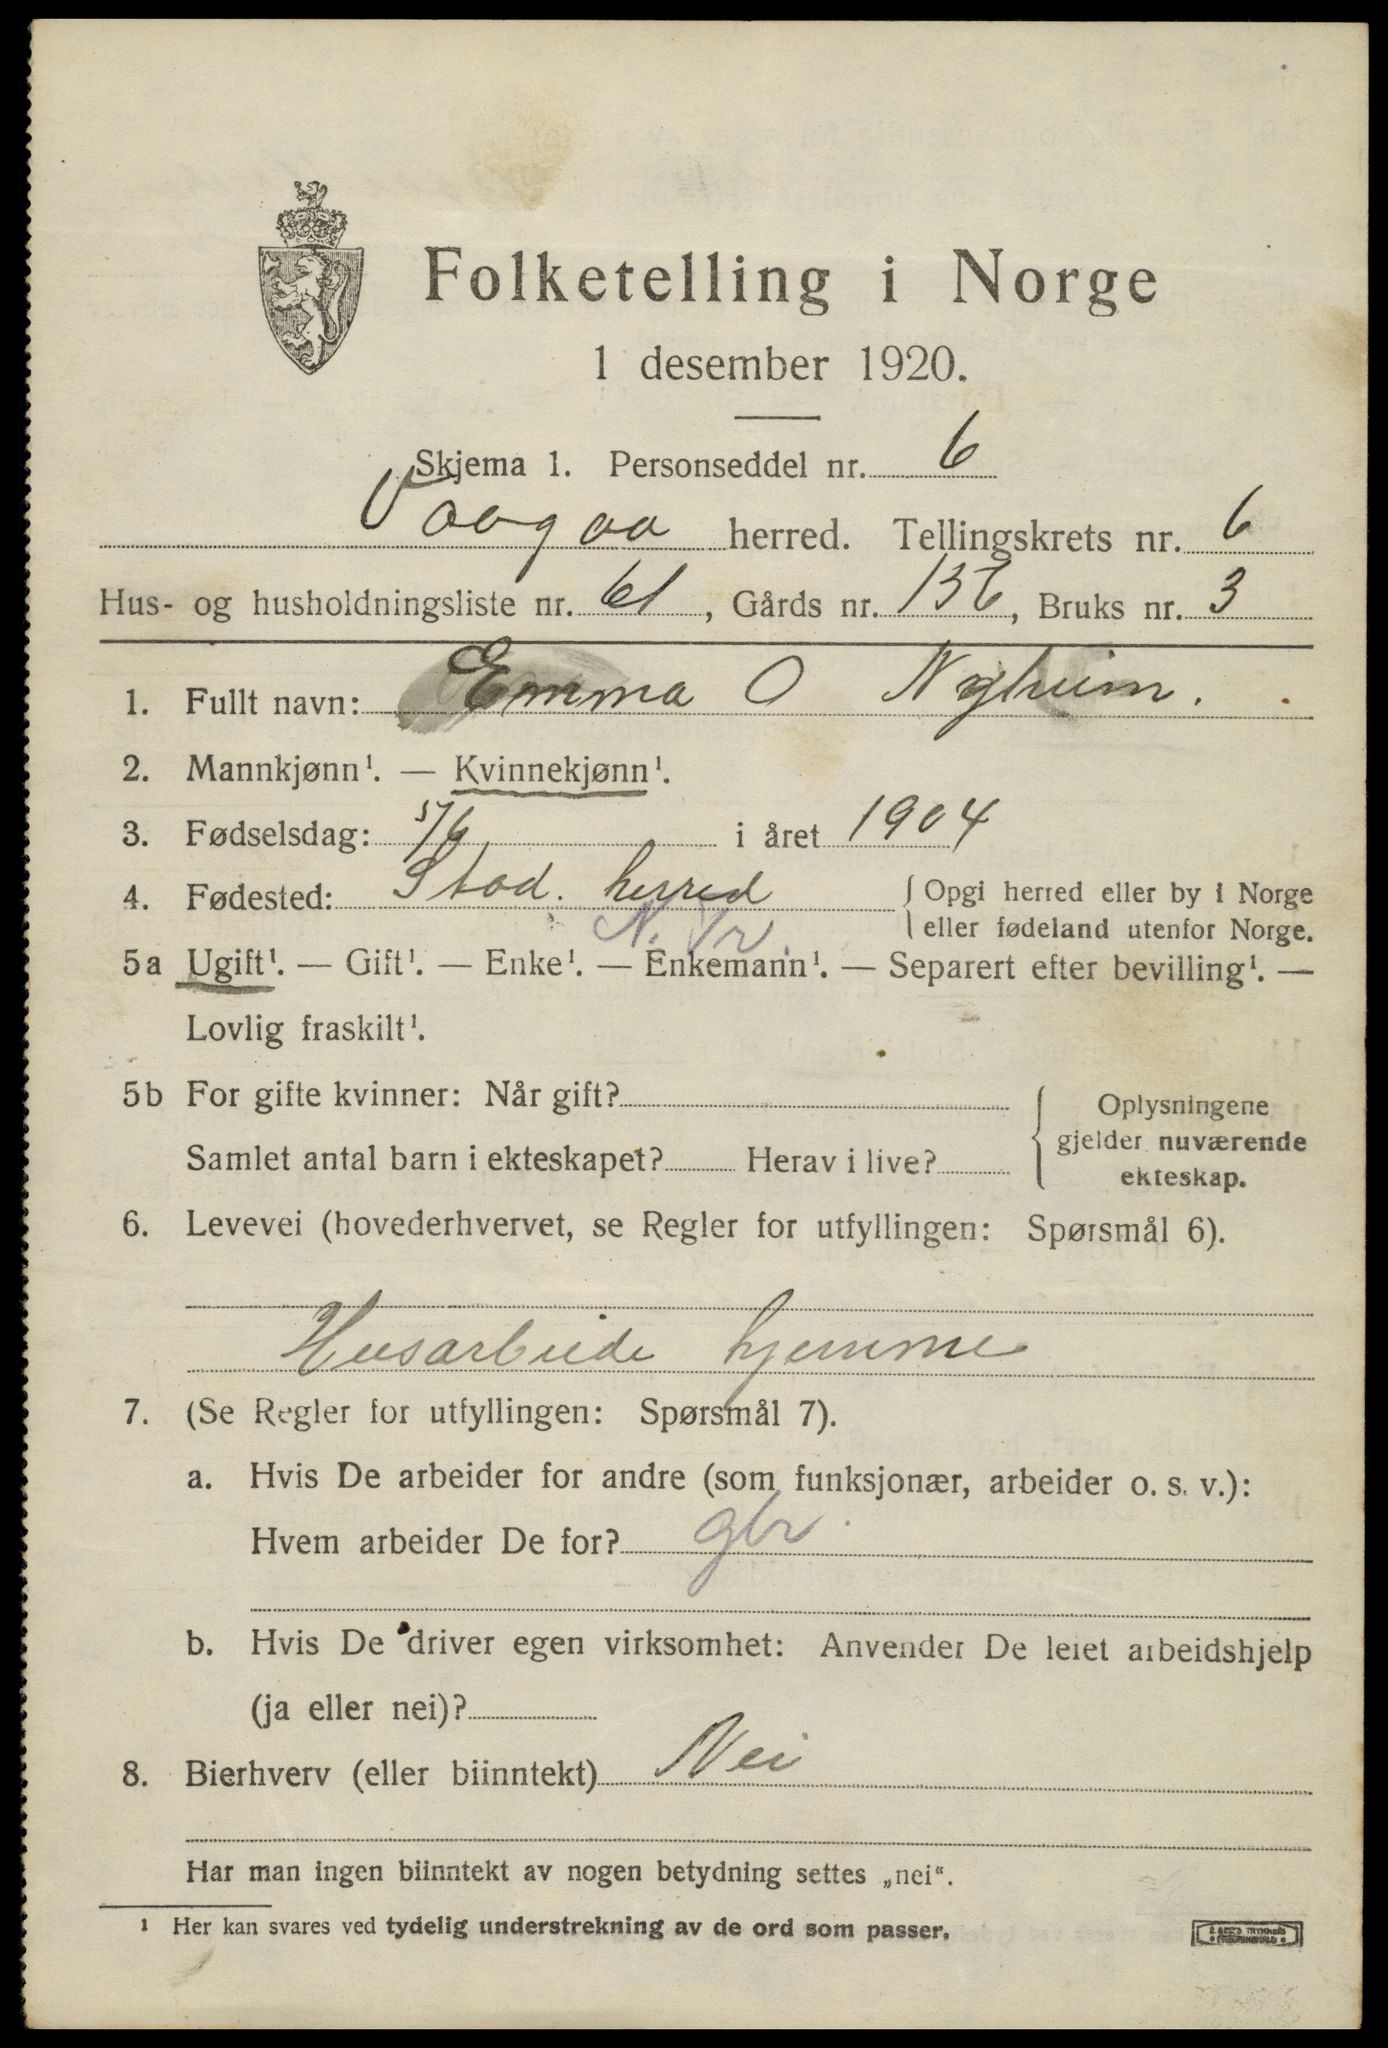 Folketelling i Norge
1 desember 1920.
Skjema 1. Personseddel nr. 6
Vaagaa herred. Tellingskrets nr. 6
Hus- og husholdningsliste nr. 61, Gårds nr. 136, Bruks nr. 3
1. Fullt navn: Emma O Nyheim.
2. Mannkjønn¹. — Kvinnekjønn¹.
3. Fødselsdag: 5/6 i året 1904
4. Fødested: Stod. herred { Opgi herred eller by i Norge
eller fødeland utenfor Norge.
N. Tr.
5a Ugift¹. — Gift¹. — Enke¹. — Enkemann¹. — Separert efter bevilling¹. —
Lovlig fraskilt¹.
5b For gifte kvinner: Når gift?
Samlet antal barn i ekteskapet? Herav i live?
{ Oplysningene
gjelder nuværende
ekteskap.
6. Levevei (hovederhvervet, se Regler for utfyllingen: Spørsmål 6).
Husarbeide hjemme
7. (Se Regler for utfyllingen: Spørsmål 7).
a. Hvis De arbeider for andre (som funksjonær, arbeider o. s. v.):
Hvem arbeider De for? gbr.
b. Hvis De driver egen virksomhet: Anvender De leiet arbeidshjelp
(ja eller nei)?
8. Bierhverv (eller biinntekt) Nei
Har man ingen biinntekt av nogen betydning settes „nei“.
¹ Her kan svares ved tydelig understrekning av de ord som passer.